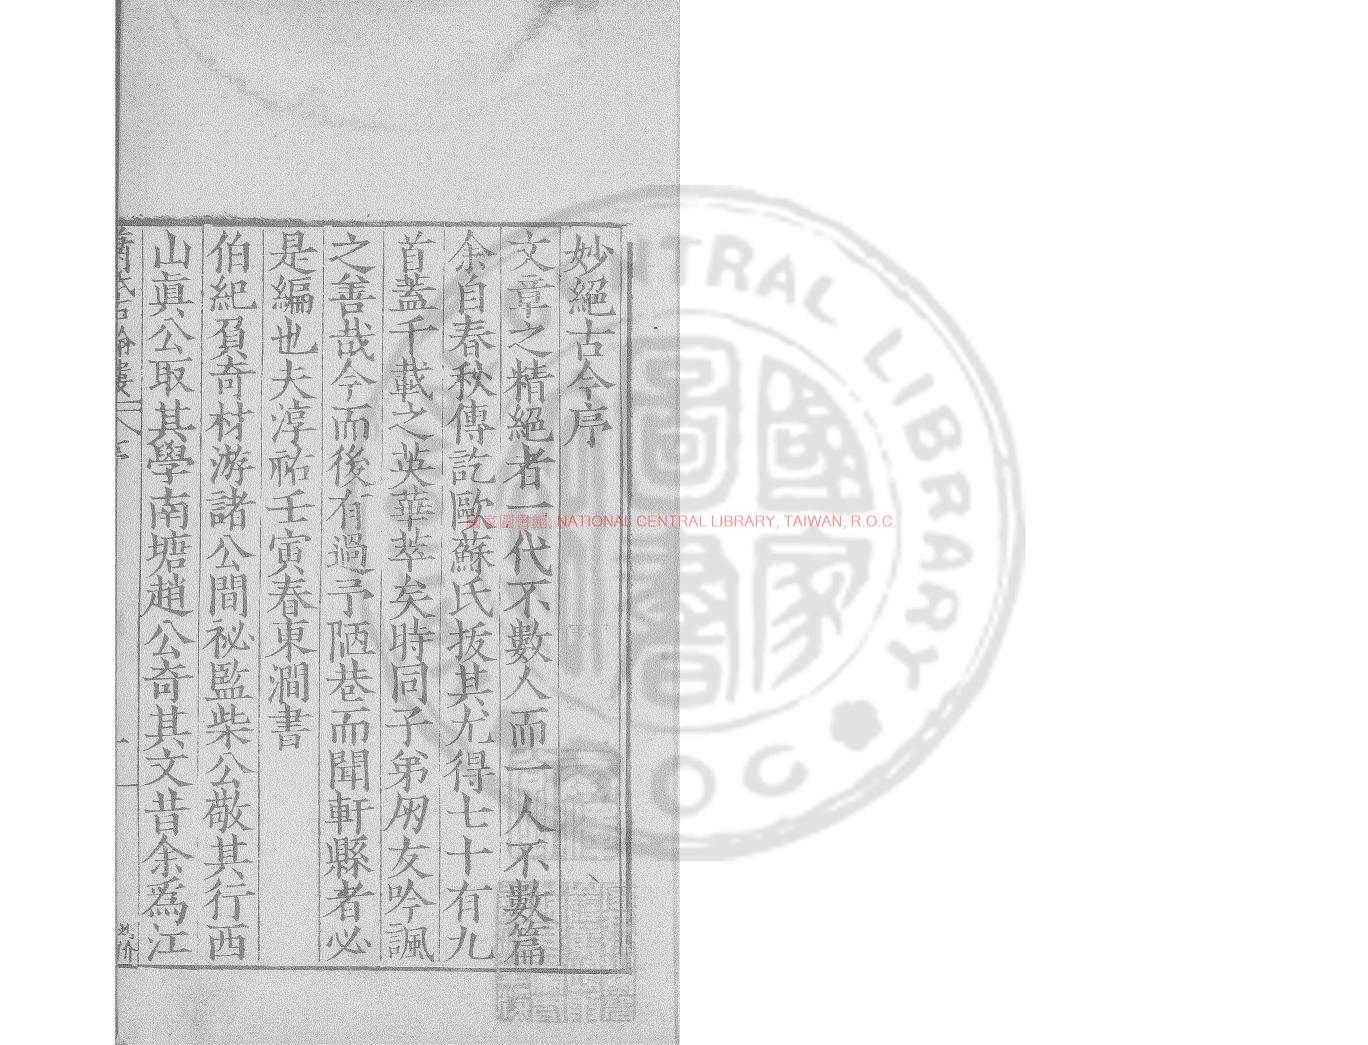 妙絕古今序
文章之精絕者一代不數人而一人不數篇
余自春秋傳訖歐蘇氏拔其尤得七十有九
首蓋千載之英華萃矣時同子弟朋友吟諷
之善哉今而後有過予陋巷而聞軒縣者必
是編也夫淳祐壬寅春東澗書
伯紀負奇材游諸公間祕監柴公敬其行西
山眞公取其學南塘趙公奇其文昔余爲江
國家圖書館, NATIONAL CENTRAL LIBRARY, TAIWAN, R.O.C.